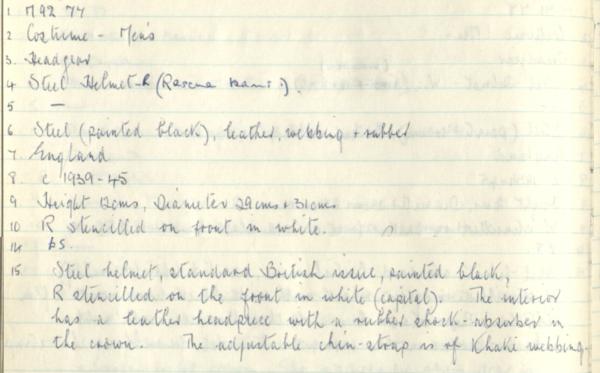 1 M92 77
2 Costume - Men's
3. Headgear
4 Steel Helmet - R (Rescue
5 —
6 Steel (painted black), leather, webbing + rubber
7. England
8 c 1939-45
9 Height 12cms, Diameter 29cms + 31cms
10 R Stencilled on front in white.
14
15 Steel helmet, standard British issue, painted black,
R stencilled on the front in white (capital). The interior
has a leather headpiece with a rubber shock-absorber in
the crown. The adjustable chin-strap is of Khaki webbing.